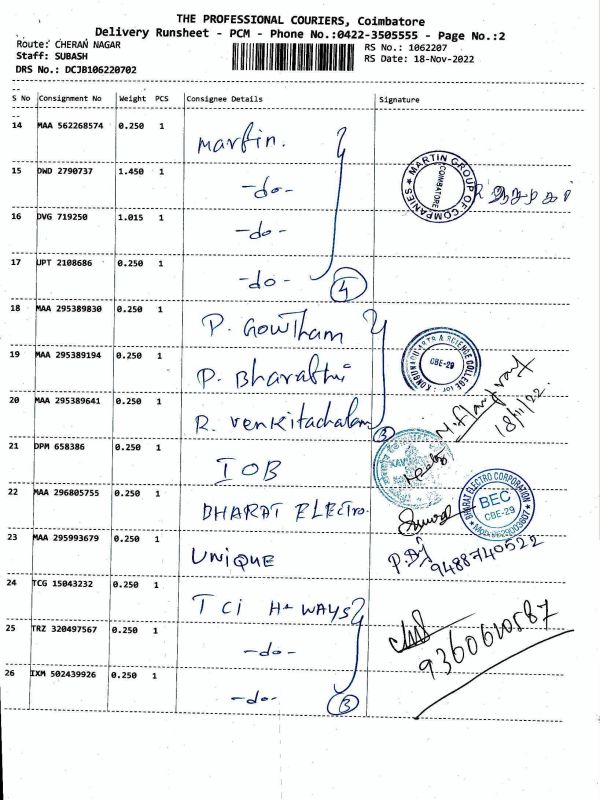 THE PROFESSIONAL COURIERS, Coimbatore
Delivery Runsheet - PCM - Phone No.:0422-3505555 - Page No.:2
Route: CHERAN NAGAR
RS No.: 1062207
Staff: SUBASH
RS Date: 18-Nov-2022
DRS No.: DCJB106220702
S No Consignment No Weight PCS Consignee Details Signature
14 MAA 562268574 0.250 1 Martin.
15 DWD 2790737 1.450 1 -do-
MARTIN GROUP OF COMPANIES
COIMBATORE
16 DVG 719250 1.015 1 -do-
17 UPT 2108686 0.250 1 -do- 4
18 MAA 295389830 0.250 1 P. Gowtham
19 MAA 295389194 0.250 1 P. Bharathi
ARTS & SCIENCE COLLEGE
CBE-29
20 MAA 295389641 0.250 1 R. Venkitachalam 3
18/11/22
21 DPM 658386 0.250 1 IOB
22 MAA 296805755 0.250 1 BHARAT ELECtro.
BHARAT ELECTRO CORPORATION
BEC
CBE-29
23 MAA 295993679 0.250 1 UNIQUE
9488740522
24 TCG 15043232 0.250 1 TCi H+ WAYS
25 TRZ 320497567 0.250 1 -do-
9360610587
26 IXM 502439926 0.250 1 -do- 3